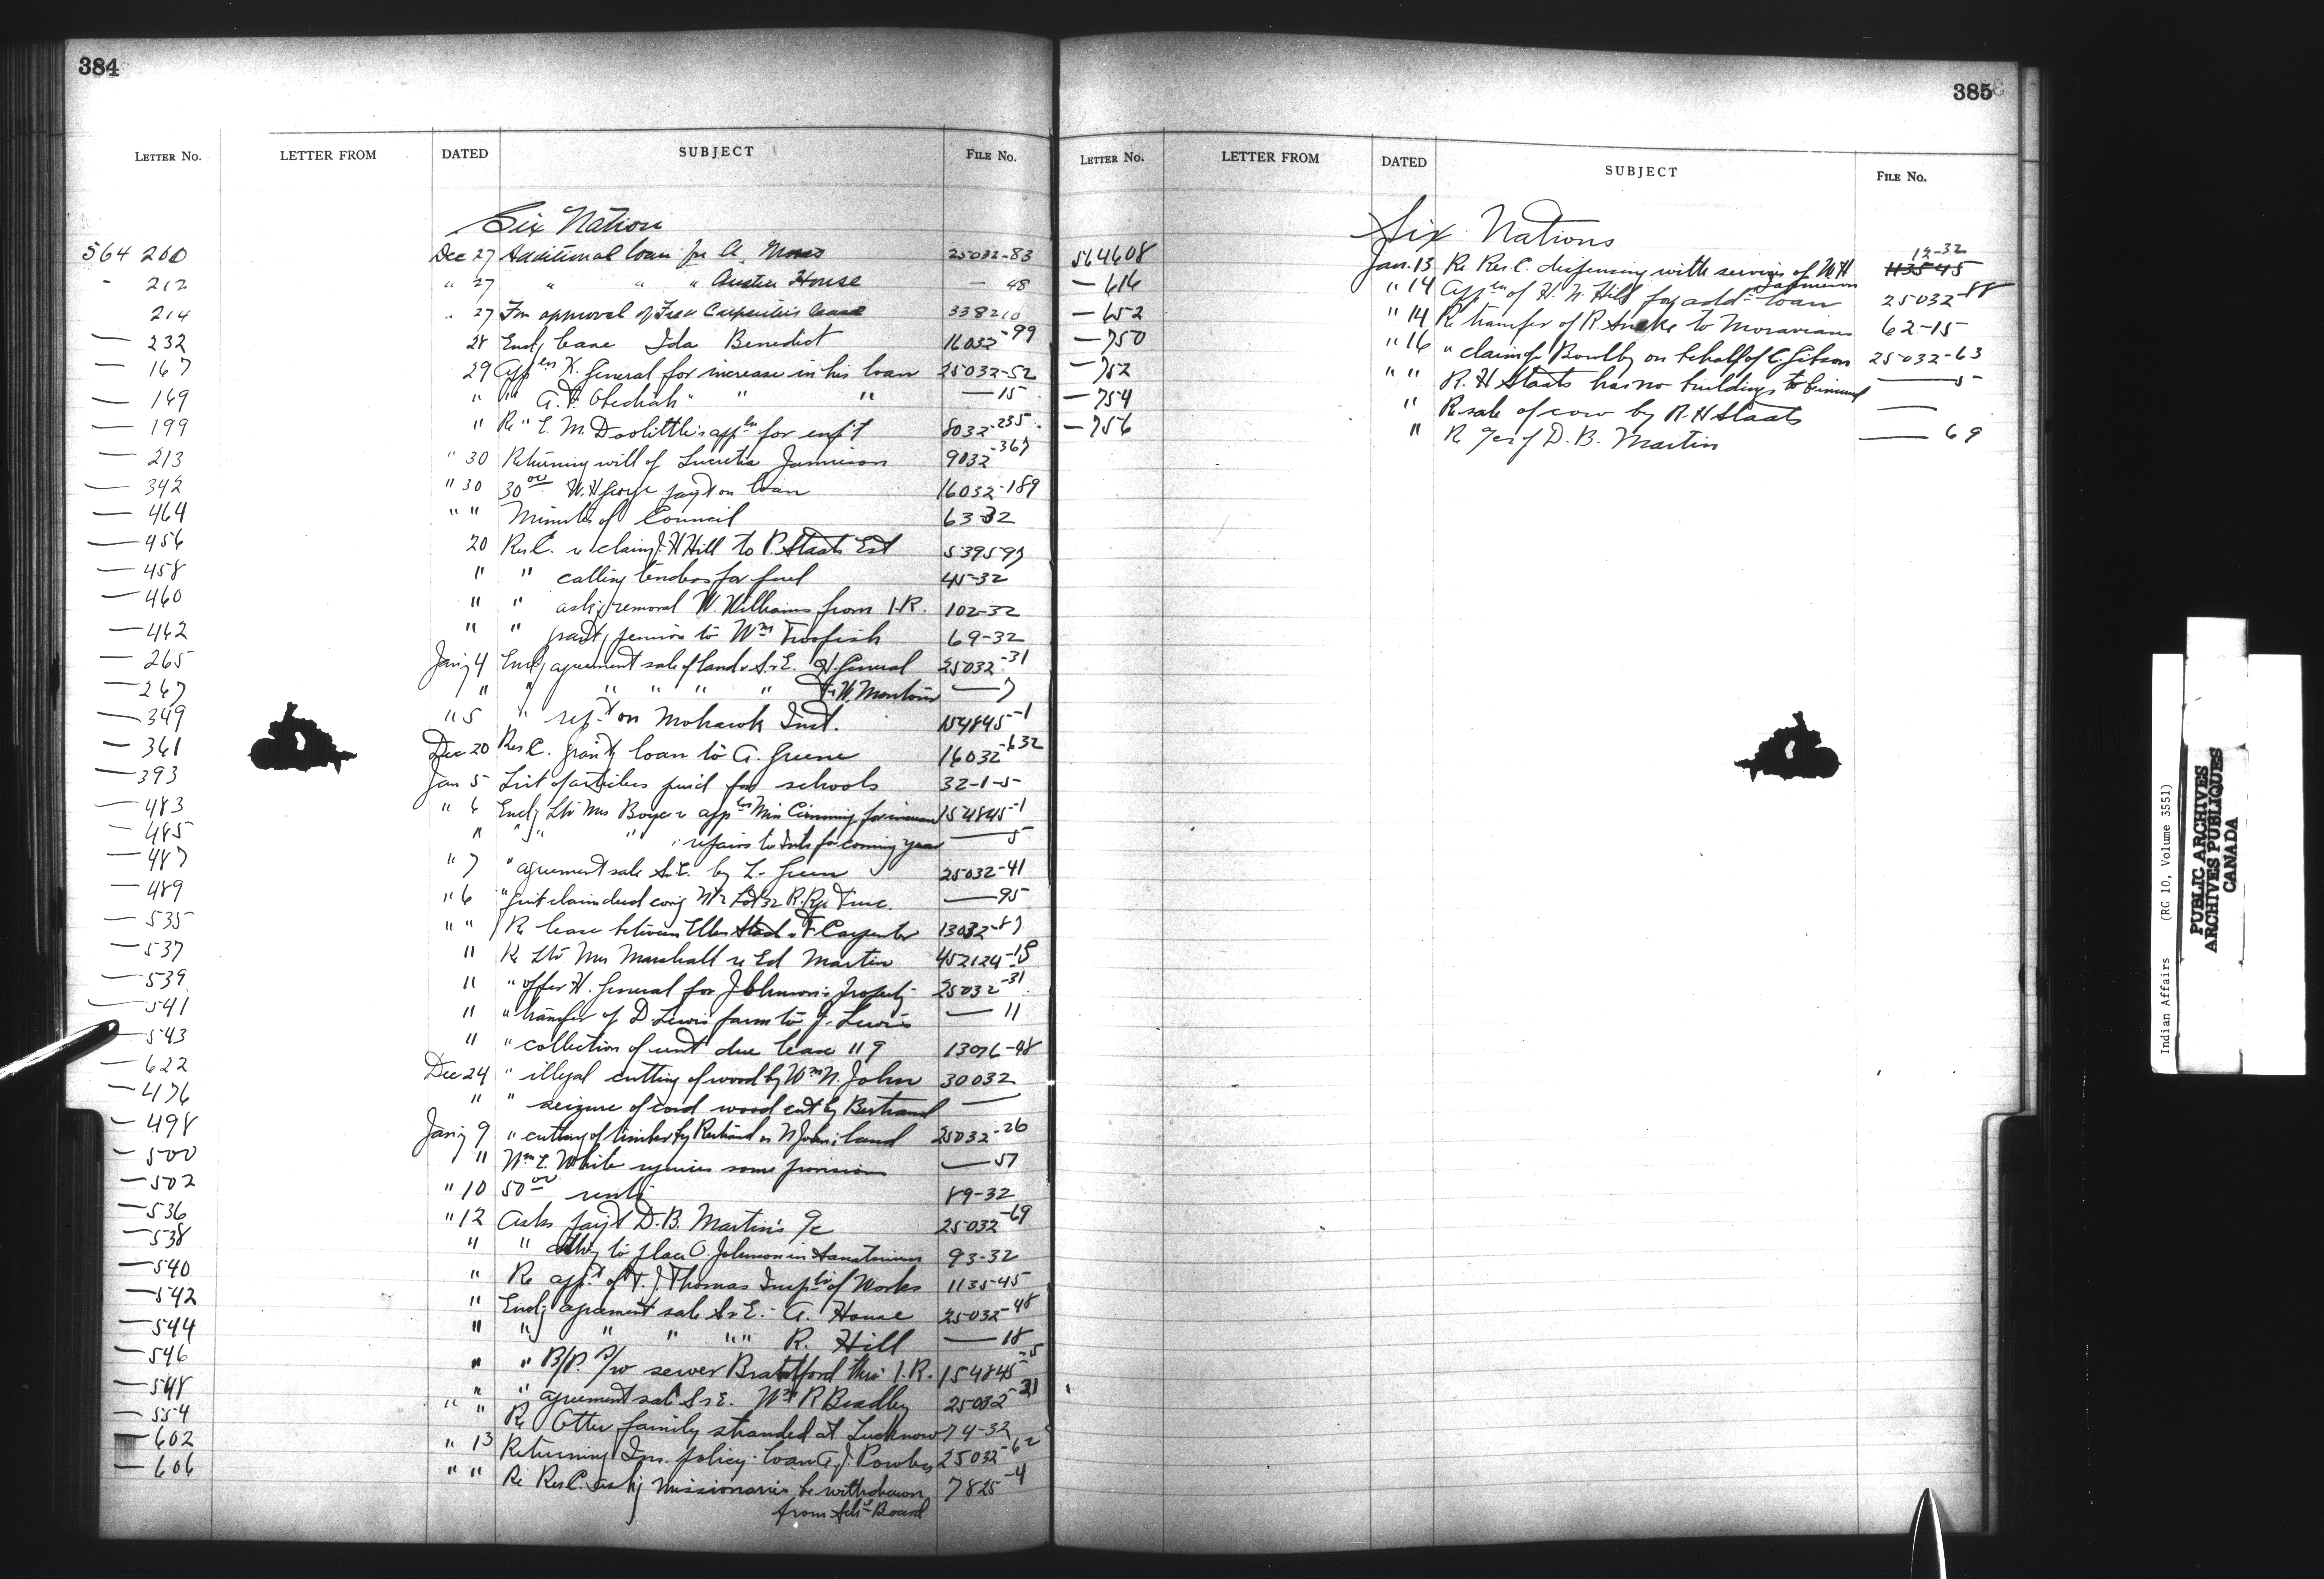 384
LETTER NO. LETTER FROM DATED SUBJECT FILE NO.
Six Nation
564 200 Dec 27 Additional loan for A. Moses 25032-83
- 212 " 27 " " " Austin House — 48
214 " 27 For approval of Carpenter's lease 338210
— 232 28 Encl'g lease Ida Benedict 16032-99
— 167 29 App'ln H. General for increase in his loan 25032-52
— 169 " " A. F. Obediah " " " — 15
— 199 " Re " E. M. Doolittle's app'ln for enf't 8032-235
— 213 " 30 Returning will of Lucretia Jamieson 9032-367
— 342 " 30 30 00 W. H George pay't on loan 16032-189
— 464 " " Minutes of Council 63-32
— 456 20 Res C. re claim J. H Hill to P. Staats Est 539597
— 458 " " calling tenders for fuel 45-32
— 460 " " ask'g removal W. Williams from I.R. 102-32
— 462 " " grant'g pension to Wm Twofish 69-32
— 265 Jan'y 4 Encl'g agreement sale of land & S&E. H. General 25032-31
— 267 " " " " " " F. W. Monture — 7
— 349 " 5 " rep't on Mohawk Inst. 154845-1
— 361 Dec 20 Res C. grant'g loan to A. Greene 16032-632
— 393 Jan 5 List of articles pur'd for schools 32-1-5
— 483 " 6 Encl'g Ltr Mrs Boyce re app'ln Miss Cumming for increase 154845-1
— 485 " " " " repairs to Inst for coming year — 5
— 487 " 7 " agreement sale S.E. by L. Green 25032-41
— 489 " 6 " quit claim deed cov'g N½ Lot 32 R. Rge Tusc. — 95
— 535 " " Re lease between Ellen Staats & F Carpenter 13032-87
— 537 " Re Ltr Mrs Marshall re Ed Martin 452124-18
— 539 " " offer H. General for J Johnson's property 25032-31
— 541 " " transfer of D. Lewis farm to J. Lewis — 11
— 543 " " collection of rent due lease 119 13076-48
— 622 Dec 24 " illegal cutting of wood by Wm N. John 30032
— 476 " " seizure of cord wood cut by Bertrand —
— 498 Jan'y 9 " cutting of timber by Bertrand on N John's land 25032-26
— 500 " Wm E. White requires some provision — 57
— 502 " 10 50 00 rents 89-32
— 536 " 12 Asks pay't D. B. Martin's a/c 25032-69
— 538 " " auth'y to place O. Johnson in Sanatorium 93-32
— 540 " Re app't of T. J Thomas Insp'tr of Works 113545
— 542 " Encl'g agreement sale S&E. A. House 25032-48
— 544 " " " " " " R. Hill — 18
— 546 " " B/P. s/w sewer Brantford thro I.R. 154845-5
— 548 " " agreement sale S&E. Wm R Bradley 25032-31
— 554 " " Re Otter family stranded at Lucknow 74-32
— 602 " 13 Returning Ins. policy loan A. J. Powless 25032-62
— 606 " " Re Res C. ask'g missionaries be withdrawn 7825-4
from Sch'l Board
385
LETTER NO. LETTER FROM DATED SUBJECT FILE NO.
Six Nations
12-32
564608 Jan. 13 Re Res C. dispensing with services of W H 113545
Jamieson
— 616 " 14 App'ln of H. N. Hill for add'l loan 25032-88
— 652 " 14 Re transfer of R. Snake to Moravians 62-15
— 750 " 16 " claim of Bowlby on behalf of C. Gibson 25032-63
— 752 " " R. H Staats has no buildings to be insured — 5
— 754 " Re sale of cow by R. H Staats —
— 756 " Re a/c of D. B. Martin — 69
Indian Affairs (RG 10, Volume 3551)
PUBLIC ARCHIVES
ARCHIVES PUBLIQUES
CANADA